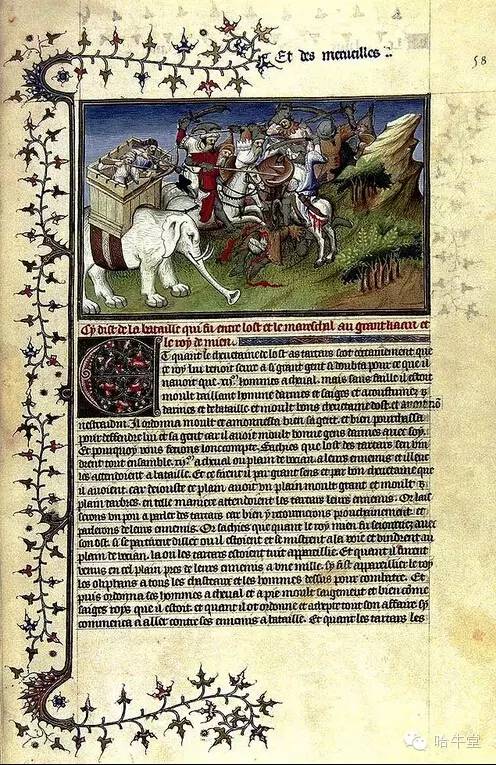 Et des merueilles
58
Cy dist de la bataille qui fu entre lost et le mareschal au grant kaan et
le roy de mien.
Et quant le cheuetaine de lost as tartars scot certainement que
ce roy lui venoit seure a si grant gent si doubta pour ce que il
nauoit que .xij. hommes a cheual. mais sans faille il estoit
moult vaillant homme darmes et saiges et acoustumez
darmes et de bataille et moult bons cheuetaine dost. et amonn
nestra Il ordonna moult et amonnesta bien sa gent. et bien pourchassa
pour deffendre lui et sa gent car il auoit moult bonne gens darmes auec soy.
Et pourquoy vous feroie loncompte. Sachies que lost des tartars sen vin
drent tout ensamble .xij. a cheual ou plain de vocian. a leurs ennemis et illecc
les attendoient a bataille. Et ce firent il par grant sens et par bon cheuetaine que
il auoient. car de iouste ce plain auoit vn plain moult grant et moult
plain darbres. en telle maniere attendoient les tartars leurs ennemis. Or lait
rons vn pou a parler des tartars car bien y retournerons prouchainement. et
parlerons de leurs ennemis. Or sachies que quant le roy mien fu seiournez auec
son ost. si se partirent dillec ou il estoient et se mistrent a la voie et vindrent au
plain de vocian. la ou les tartars estoient tuit appareillie. Et quant il furent
venus en cel plain pres de leurs ennemis a vne mille. sy fist appareillier le roy
les oliphans a tous les chasteaux et les hommes dessus pour combatre. Et
puis ordonna ses hommes a cheual et a pie moult saigement et bien come
saiges roys que il estoit et quant il ot ordonne et adrepte tout son affaire sy
commenca a aller contre ses ennemis a bataille. Et quant les tartars les
哈牛堂